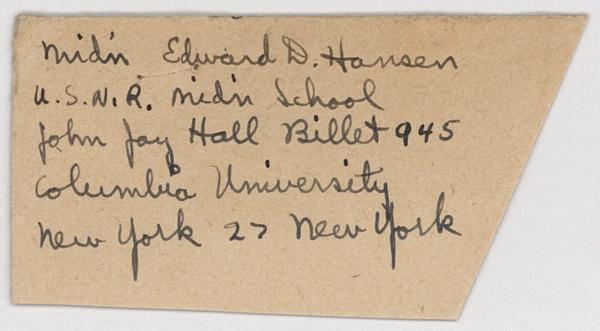 Mid'n Edward D. Hansen
U.S.N.R. Mid'n School
John Jay Hall Billet 945
Columbia University
New York 27 New York